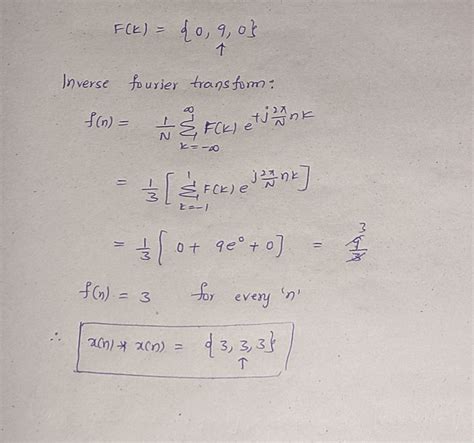 F(k) = {0, 9, 0}
↑
Inverse fourier transform:
f(n) = 1/N ∑_{k=-∞}^{∞} F(k) e^{+j 2π/N nk}
= 1/3 [ ∑_{k=-1}^{1} F(k) e^{j 2π/N nk} ]
= 1/3 [ 0 + 9e⁰ + 0 ] = 9/3 3
f(n) = 3 for every 'n'
∴ x(n) * x(n) = {3, 3, 3}
↑